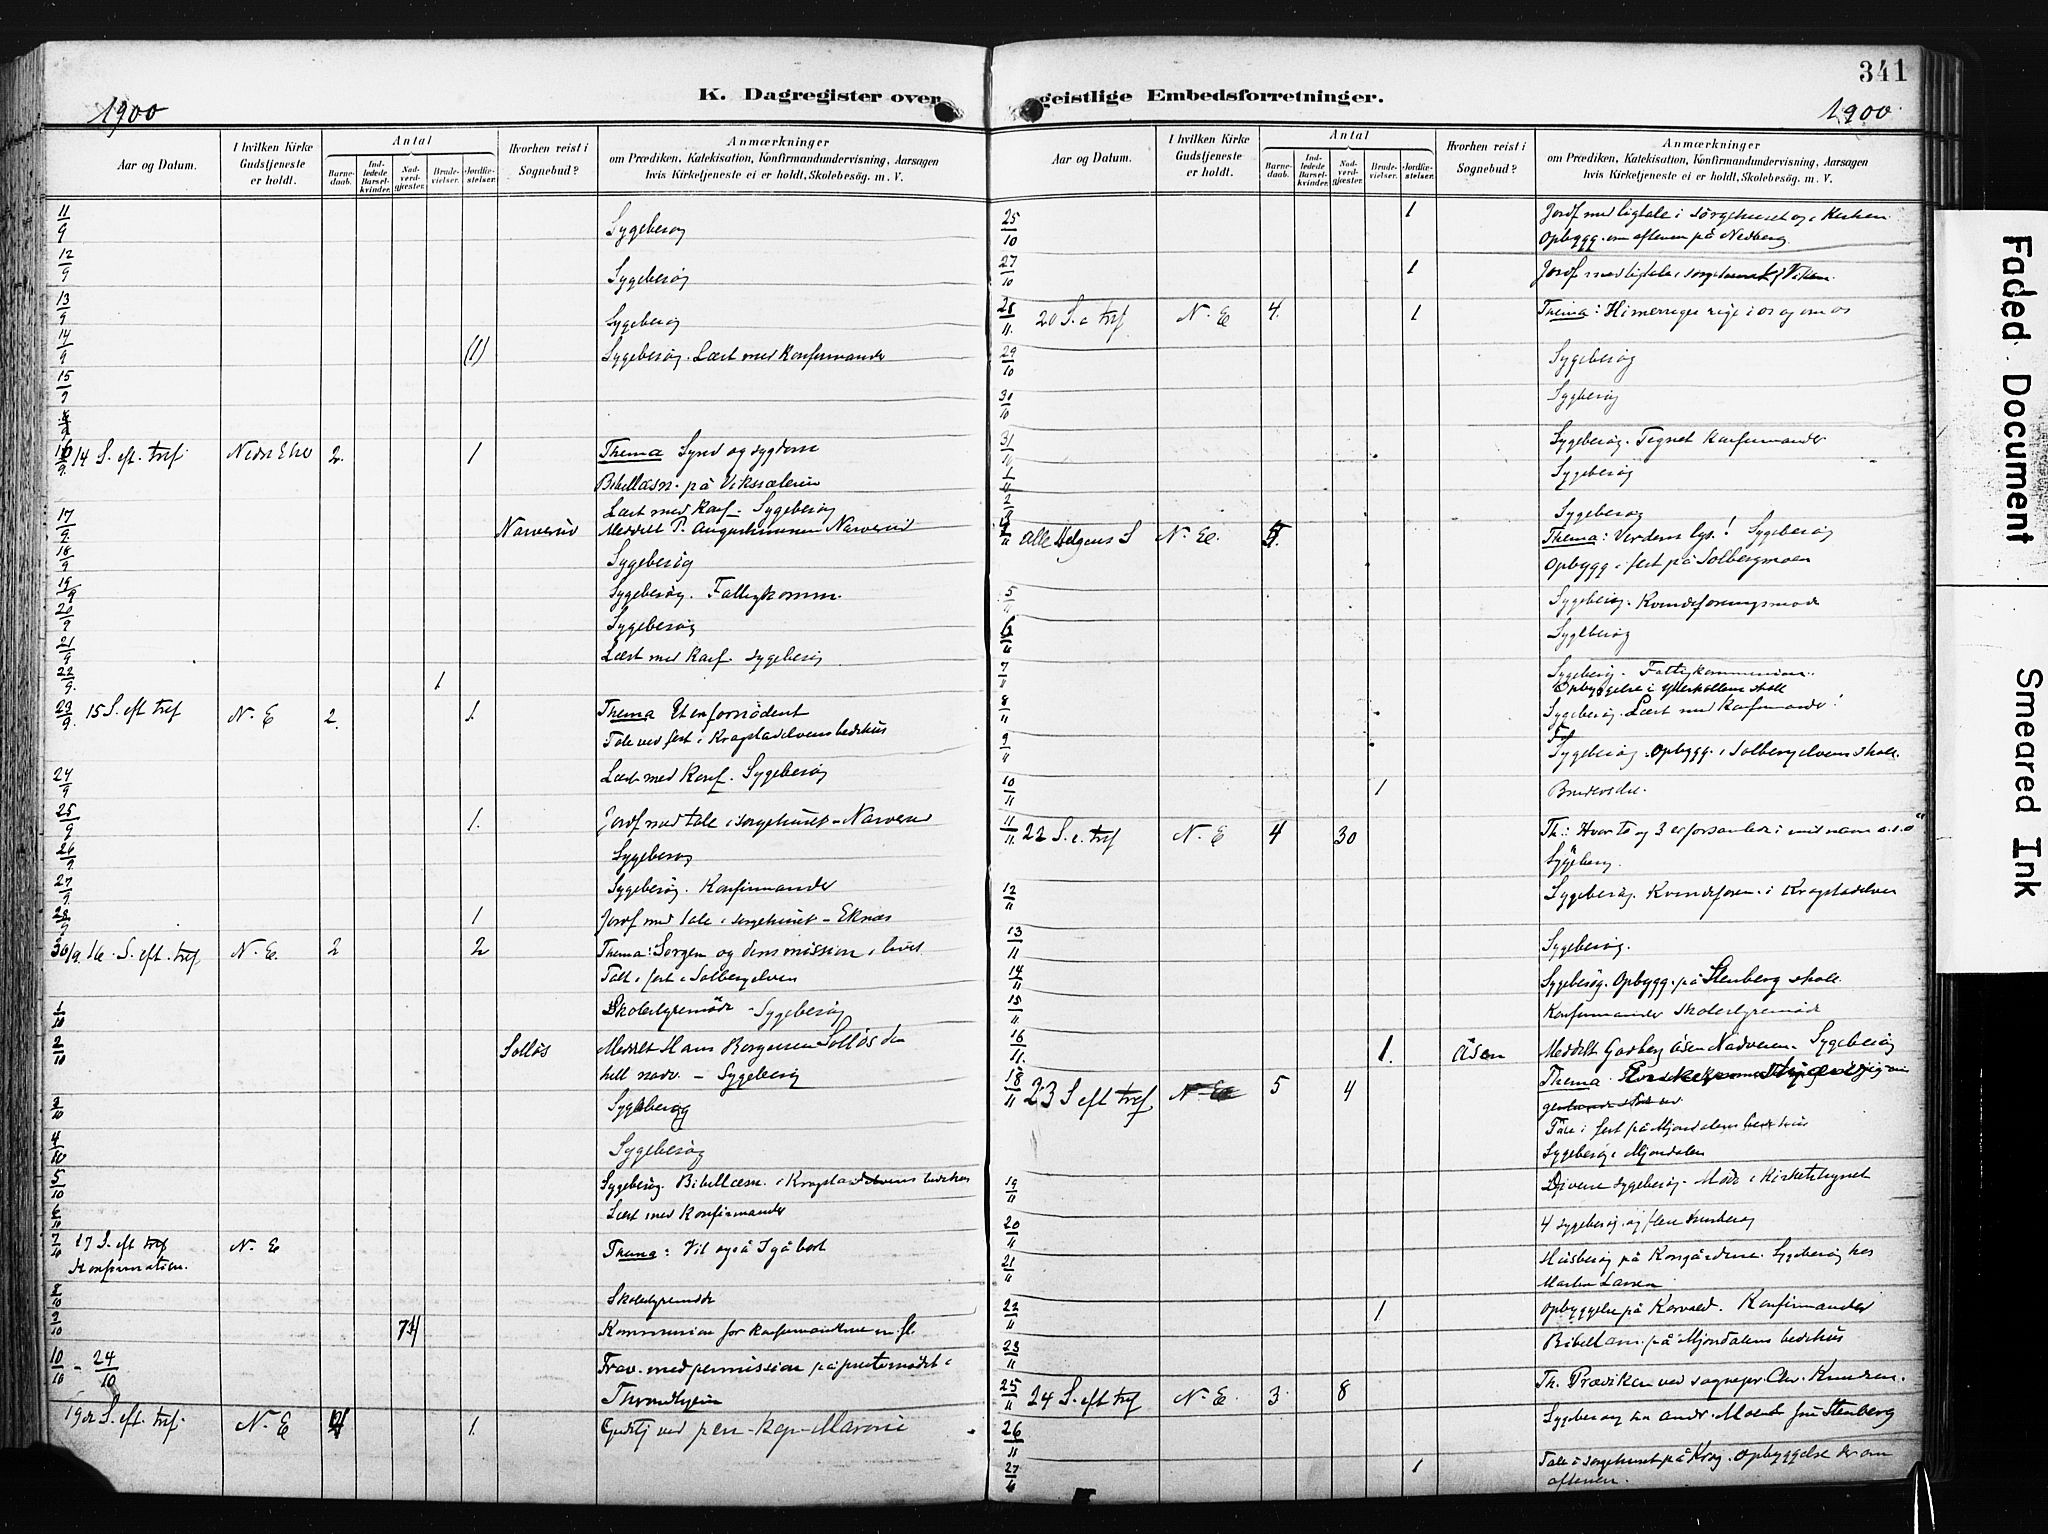 341
K. Dagregister over geistlige Embedsforretninger.
1900
1900
Aar og Datum.
I hvilken Kirke Gudstjeneste er holdt.
Antal
Barnedaab.
Indledede Barselkvinder.
Nadverdgjester.
Brudevielser.
Jordfæstelser.
Hvorhen reist i Sognebud?
Anmærkninger
om Prædiken, Katekisation, Konfirmandundervisning, Aarsagen
hvis Kirketjeneste ei er holdt, Skolebesøg. m. V.
11/9 Sygebesøg
12/9 Sygebesøg
13/9 Sygebesøg
14/9 (1) Sygebesøg. Læst med Konfirmander
15/9
16/9 14 S. eft. tref. Nedre Eker 2. 1 Thema Synd og sygdom
Bibellæsn. på
Læst med Konf. Sygebesøg
17/9 Narverud Meddelt P. Augustinussen Narverud
18/9 Sygebesøg
19/9 Sygebesøg. Fattigkomm.
20/9 Sygebesøg
21/9 Læst med Konf. Sygebesøg
22/9 1
23/9 15 S. eft tref N. E 2. 1. Thema Et er fornødent
Tale ved fest i Krogstadelvens bedehus
24/9 Læst med Konf. Sygebesøg
25/9 1. Jordf med tale i sørgehuset - Narverud
26/9 Sygebesøg
27/9 Sygebesøg. Konfirmander
28/9 1 Jordf med tale i sørgehuset - Eknæs
30/9. 16. S. eft. tref N. E. 2 2 Thema: Sorgen og dens mission i livet
Talt i fest i Solbergelven
1/10 Skolestyremøde - Sygebesøg
2/10 Solløs Meddelt Hans Borgersen Solløs den
hell nadv. - Sygebesøg
3/10 Sygebesøg
4/10 Sygebesøg
5/10 Sygebesøg. Bibellæsn. i Krogstadelvens bedehus
6/10 Læst med Konfirmander
7/10 17 S. eft tref N. E Thema: Vil også I gå bort
Konfirmation.
8/10 Skolestyremøde
9/10 Kommunion for konfirmanderne m. fl.
10/10 - 24/10 Frav. med permission på prestemødet i
Throndhjem
19de S. eft. tref. N. E 1. Gudstj ved pen. kap.
Aar og Datum.
I hvilken Kirke Gudstjeneste er holdt.
Antal
Barnedaab.
Indledede Barselkvinder.
Nadverdgjester.
Brudevielser.
Jordfæstelser.
Hvorhen reist i Sognebud?
Anmærkninger
om Prædiken, Katekisation, Konfirmandundervisning, Aarsagen
hvis Kirketjeneste ei er holdt, Skolebesøg. m. V.
25/10 1 Jordf med ligtale i sørgehuset og i Kirken
Opbygg. om aftenen på Nedberg.
27/10 1 Jordf med ligtale i sørgehuset
28/11. 20 S. e tref N. E 4. 1 Thema: Himmeriges rige i os og om os
29/10 Sygebesøg
30/10 Sygbesøg
31/10 Sygebesøg. Tegnet Konfirmander
1/11 Sygebesøg
2/11 Sygebesøg
4/11 Alle Helgens S N. E. 5. Thema: Verdens lys! Sygebesøg
Opbygg i fest på Solbergmoen
5/11 Sygebesøg. Kvindeforeningsmøde
6/11 Sygebesøg
7/11 Sygebesøg - Fattigkommission.
Opbyggelse i Ytterkollens skole
8/11 Sygebesøg. Læst med Konfirmander!
9/11 Sygebesøg. Opbygg. i Solbergelvens skole.
10/11 1 Brudevielse.
11/11. 22 S. e. tref N. E 4 30 Th.: Hvor to og 3 er forsamlede i mit navn o.s.v
Sygebesøg.
12/11 Sygebesøg. Kvindeforen. i Krogstadelven
13/11 Sygebesøg.
14/11 Sygebesøg. Opbygg. på Stenberg skole.
15/11 Konfirmander Skolestyremøde
16/11. 1. Åsen Meddelt Gudberg Åsen Nadveren. Sygebesøg
18/11 23 S eft tref N. E 5 4 Thema:
Tale i fest på Mjøndalens bedehus
Sygebesøg i Mjøndalen
19/11 Diverse sygebesøg. Møde i Kirketilsynet
20/11 4 sygebesøg og flere
21/11 Husbesøg på Korsgårdene. Sygebesøg hos
Martin Larsen
22/11 1 Opbyggelse på Korvald. Konfirmander
23/11 Bibellæsn. på Mjøndalens bedehus
25/11 24 S. eft tref N. E. 3. 8 Th. Prædiken ved sognepr. Chr. Knudsen.
26/11 Sygebesøg hos Stenberg
27/11 1 Tale i sørgehuset på Krog. Opbyggelse der om
aftenen.
Faded Document
Smeared Ink